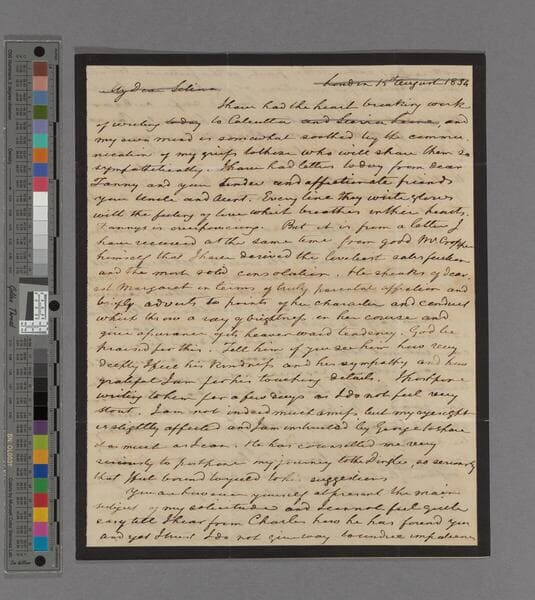 My Dear Selina London 15th August 1834
I have had the heart breaking work
of writing today to Calcutta and Sierra Leone, and
my own mind is somewhat soothed by the commu
nication of my griefs to those who will share them so
sympathetically. I have had letters today from dear
Fanny and your tender and affectionate friends
your Uncle and Aunt. Every line they write glows
with the feeling of love which breathes in their hearts.
Fanny's is overpowering. But it is from a letter I
have received at the same time from good Mr. Cropper
himself that I have derived the liveliest satisfaction
and the most solid consolation. He speaks of dear
est Margaret in terms of truly parental affection and
briefly adverts to points of her character and conduct
which throw a ray of brightness on her course and
give assurance of its heavenward tendency. God be
praised for this. Tell him if you see him how very
deeply I feel his kindness and his sympathy and how
grateful I am for his touching details. I postpone
writing to him for a few days as I do not feel very
stout. I am not indeed much amiss, but my eyesight
is slightly affected and I am instructed by George to spare
it as much as I can. He has counselled me very
seriously to postpone my journey to the Dingle, so seriously
that I feel bound to yield to his suggestions.
You are however yourself at present the main
subject of my solicitude and I cannot feel quite
easy till I hear from Charles how he has found you
and yet I trust I do not give way to undue impatience